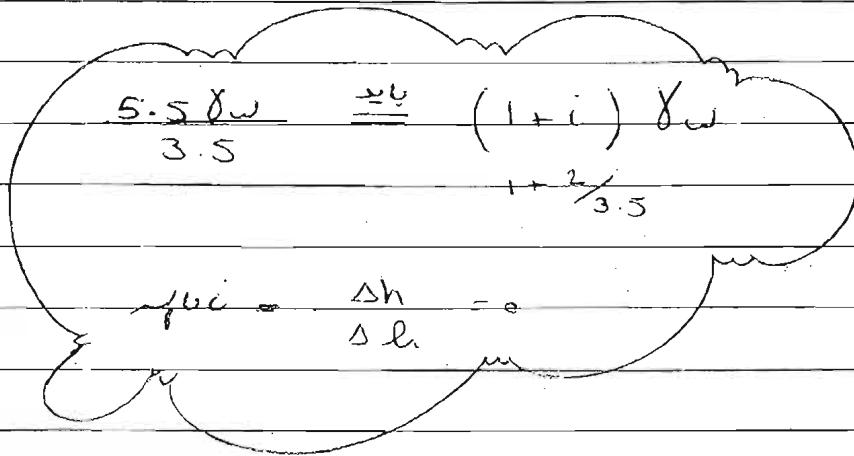 5.5 γw / 3.5 باید = (1 + i) γw
1 + 2/3.5
i = Δh / Δl =